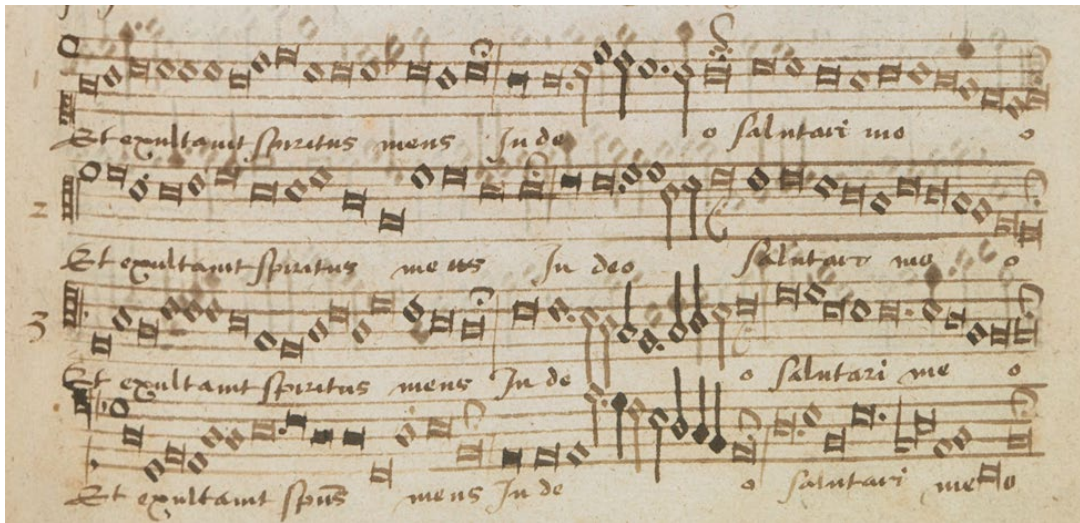 Et exultauit spiritus meus In deo salutari meo
2
Et exultauit spiritus meus In deo salutari meo
3
Et exultauit spiritus meus In deo salutari meo
Et exultauit spūs meus In deo salutari meo